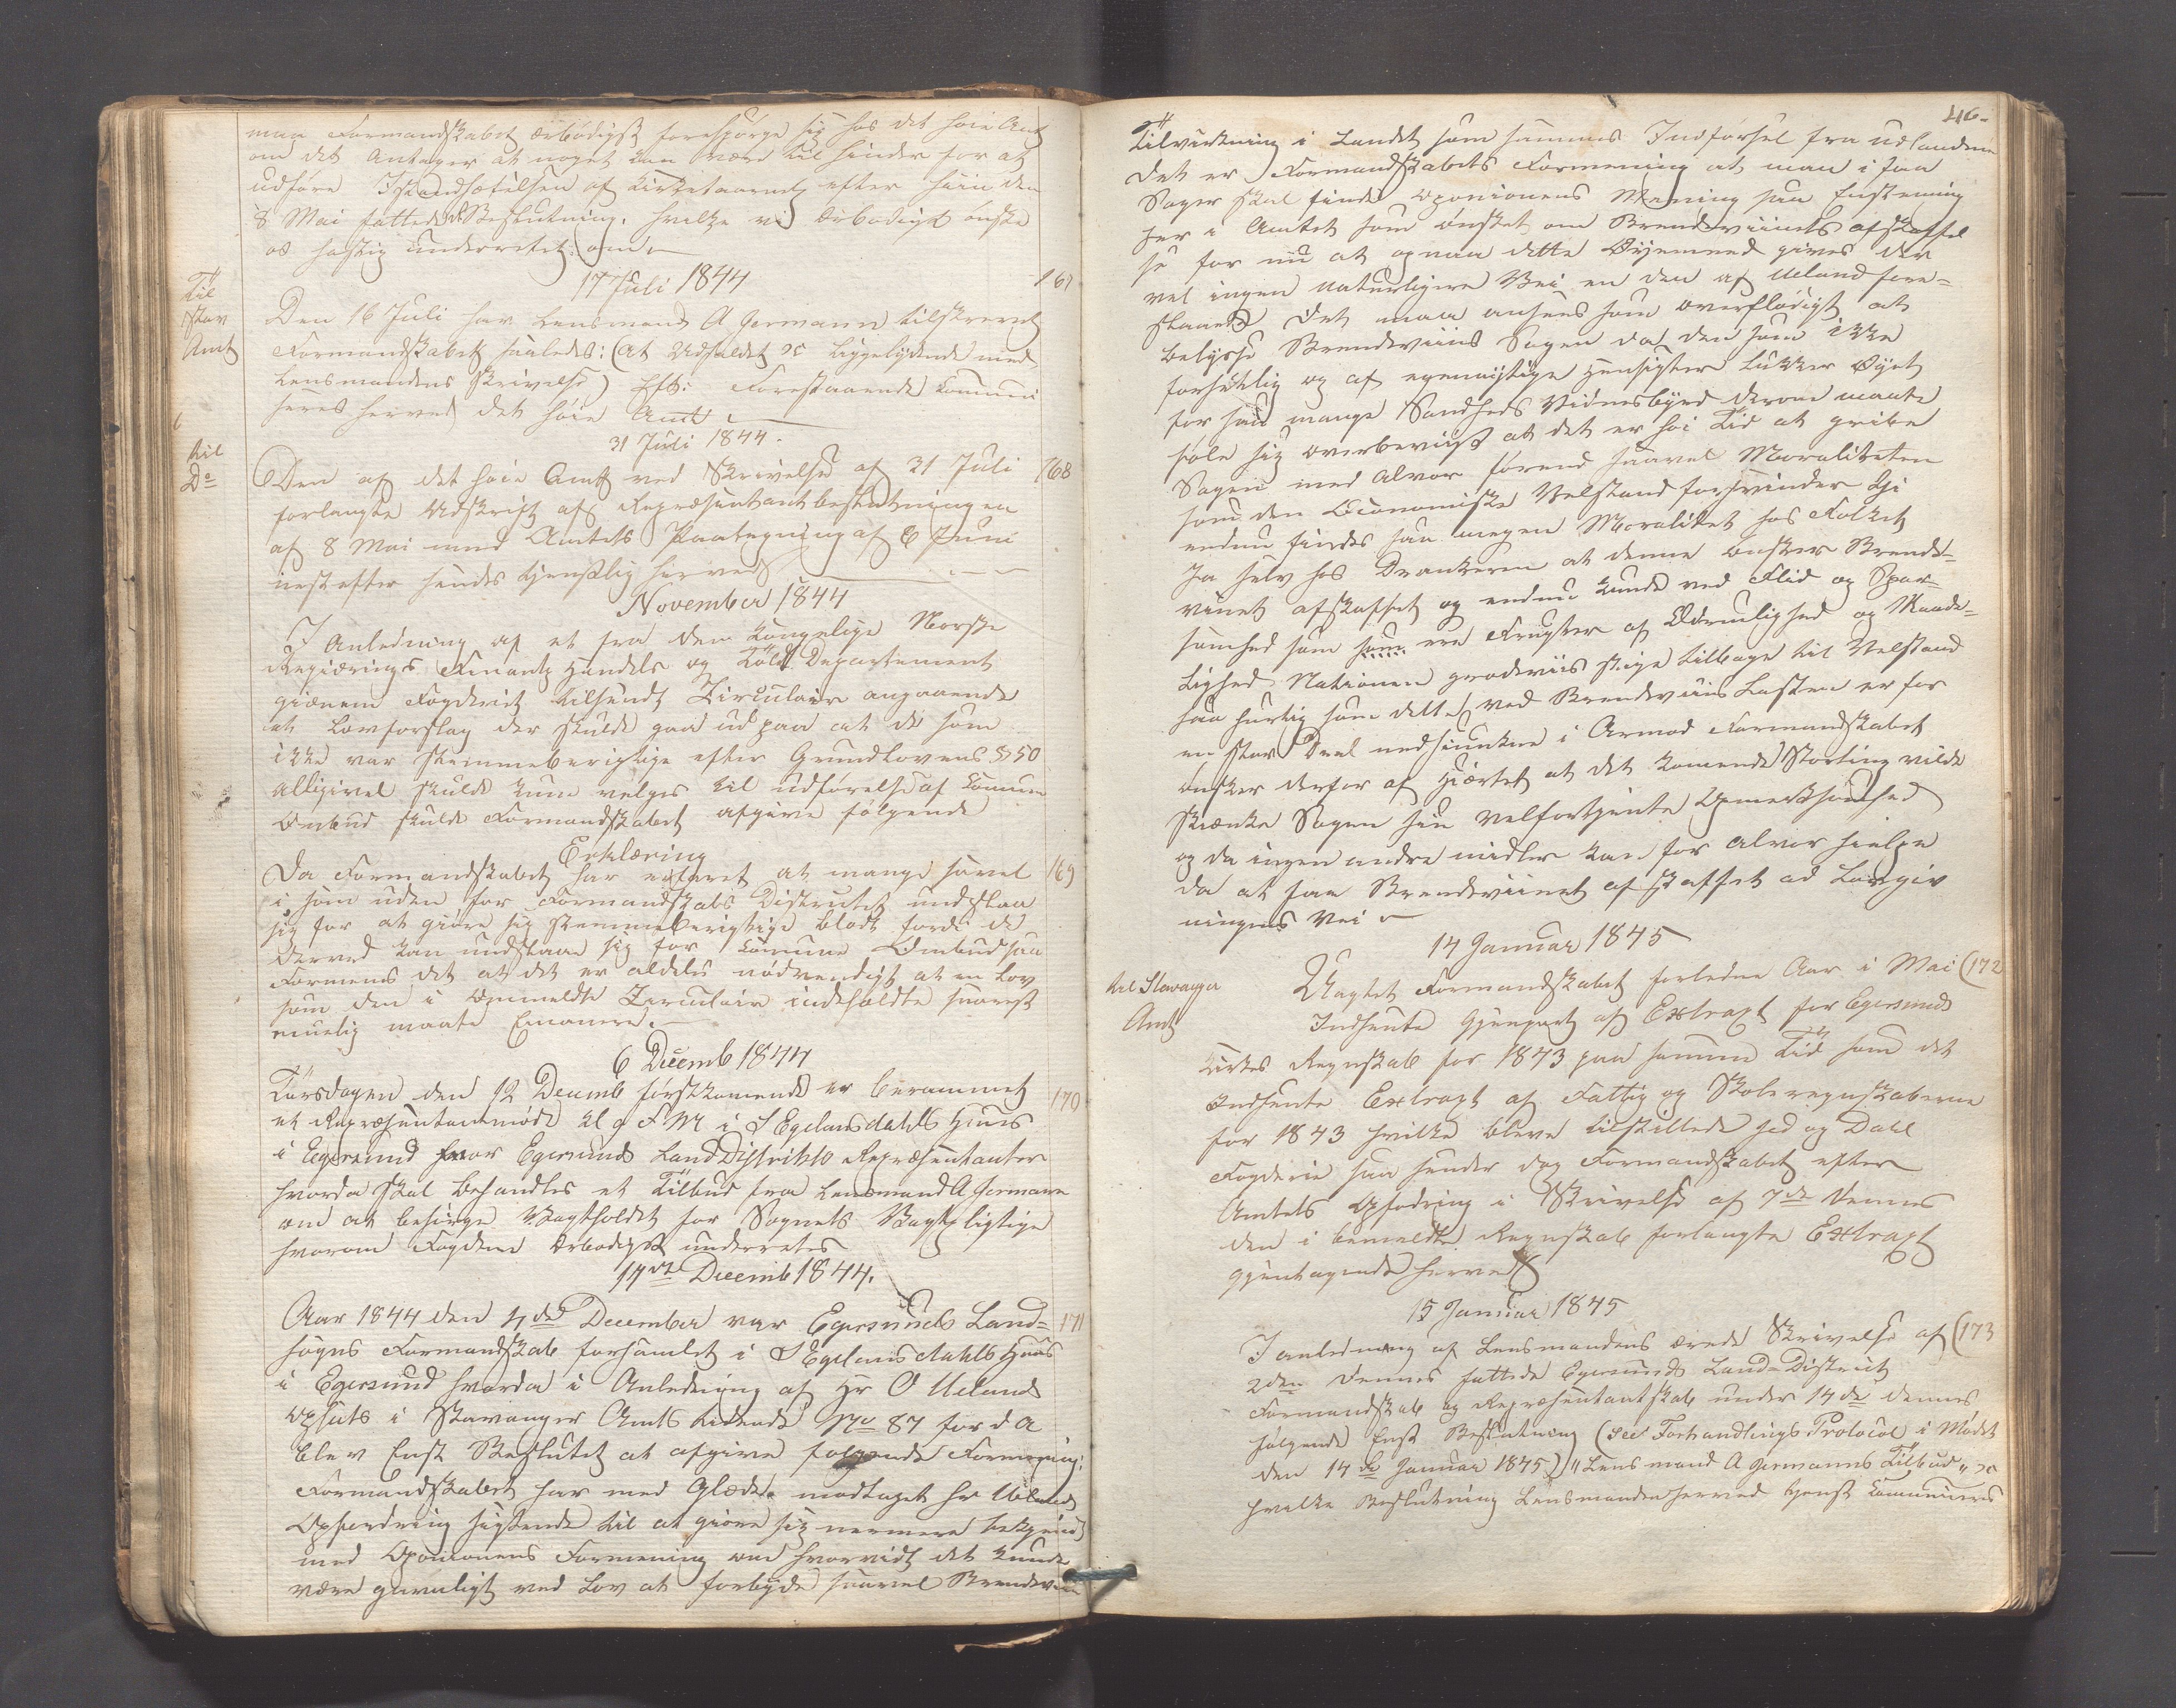 maa Formandskabet ærbødigst forespørge sig hos det høie Amt
om det antager at noget kan være til hinder for at
udføre Istandsættelsen af Kirketaarnet efter siin den
8 Mai fattede Beslutning. hvilke vi ærbødigst ønske
os hastig underrettet om
17 Juli 1844
167
Til
Stav
Amt
Den 16 Juli har Lensmand A Jermann tilskrevet
Formandskabet saaledes: (At Udfaldet &c liggelydende med
Lensmandens Skrivelse) Eft: Forestaaende Commu
seres herved det høie Amt
31 Juli 1844.
til
Do
Den af det høie Amt ved Skrivelse af 31 Juli
168
forlangte Udskrift af Repræsentantbeslutningen
af 8 Mai med Amtets Paategning af 6 Juni
nestefter sendes tjenstlig herved
November 1844
I Anledning af et fra den Kongelige Norske
Regierings Finantz Handels og Told Departement
giænem Fogderiet tilsendt Circulair angaaende
at Lovforslag der skulde gaa ud paa at de som
ikke var stemmeberigtige efter Grundlovens § 50
alligivel skulde kune velges til udførelse af Comune
Ombud skulde Formandskabet afgive følgende
Erklæring
Da Formandskabet har erfaret at mange savel
169
i som uden for Formandskabs Districtet undslaa
sig for at giøre sig stemmeberigtige blodt fordi de
derved kan undslaae sig for Comune Ombud saa
Formenes det at det er aldeles nødvendigt at en Lov
som den i Ommeldte Circulair indeholdte snarest
muelig maatte Emanere.
6 Decemb 1844
Torsdagen den 12 Decemb førstkomende er berammet
170
et Repræsentantmøde Kl 9 F M i S Egelandsdahls Huus
i Egersund hvor Egersunds Land Distrikts Repræsentanter
hvorda skal behandles et Tilbud fra Lensmand A Jermann
om at besørge Vagtholdet for Sognets Vagtpligtige
hvorom Fogden ærbødigst underrettes
14de Decemb 1844.
Aar 1844 den 4de December var Egersunds Land-
171
sogns Formandskab forsamlet i S Egelandsdahls Huus
i Egersund hvorda i Anledning af Hr O Uelands
Opsats i Stavanger Amts tidende No 87 for d A
blev Enst Besluttet at afgive følgende Formening:
Formandskabet har med Glæde modtaget Hr Uelands
Opfordring sigtende til at giøre sig nermere bekjendt
med Oponionens Formening om hvorvidt det kunde
være gavnligt ved Lov at forbyde saavel Brendeviin
46.
Tilvirkning i Landet som sammes Indførsel fra udlandene
Det er Formandskabets Formening at man i faa
Sager skal finde Oponionens Mening saa Enstemig
her i Amtet som ønsket om Brendeviinets afskaffel
se for nu at opnaa dette Øyemeed gives der
vel ingen naturligere Vei en den af Ueland fore-
slaaede Det maa ansees som overflødigt at
belysse Brendeviins Sagen da den som ikke
forsetlig og af egennyttige Hensigter lukker Øyet
for saa mange Sandheds Vidnesbyrd derom maate
føle sig overbeviist at det er høi Tid at gribe
Sagen med Alvor førend saavel Moraliteten
som den Øconomiske Velstand forsvinder thi
endnu findes saa megen Moralitet hos Folket
Ja selv hos Drankeren at denne ønsker Brende-
vinet afskaffet og endnu kunde ved Flid og Spar-
somhed som som ere Frugter af Ædruelighed og Maade-
lighed Nationen gradeviis stige tilbage til Velstand
saa hurtig som dette ved Brendeviins Lasten er for
en stor Deel nedsiunken i Armod Formandskabet
ønsker derfor af Hiærtet at det komende Storting vilde
skienke Sagen sin velfortjente Opmerksomhed
og da ingen andre midler kan for alvor hielpe
da at faa Brendeviinet afskaffet ad Lovgiv
ningens Vei
14 Januar 1845
til Stavanger
Amt
Uagtet Formandskabet forledne Aar i Mai
172
Indsente Gjenpart af Extragt for Egersunds
Kirkes Regnskab for 1843 paa samme Tid som det
Indsente Extragt af Fattig og Skoleregnskaberne
for 1843 hvilke bleve tilstillede Jed og Dahl
Fogderie saa sender dog Formandskabet efter
Amtets Opfodring i Skrivelse af 7de dennes
den i bemeldte Regnskab forlangte Extragt
gjentagende herved
15 Januar 1845
I anledning af Lensmandens ærede Skrivelse af
173
2den dennes fattede Egersunds Land-District
Formandskab og Repræsentantskab under 14de dennes
følgende Enst Beslutning (See Forhandlings Protocol i Mødet
den 14de Januar 1845) "Lensmand A Jermanns Tilbud" &c
hvilke Beslutning Lensmanden herved tjenst Communiceres